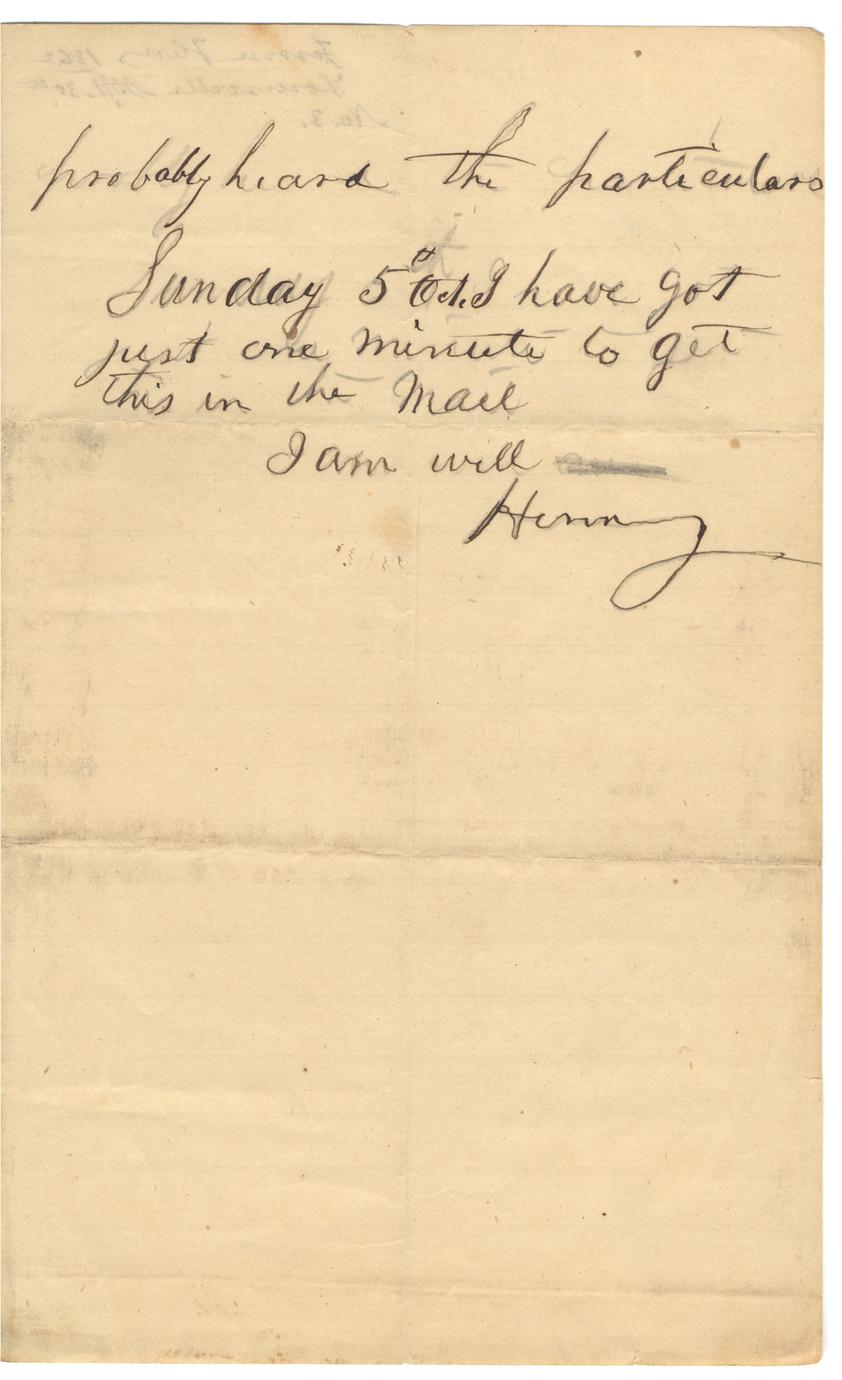 probably heard the particulars
Sunday 5th Oct. I have got
just one minute to get
this in the Mail
I am well
Henry